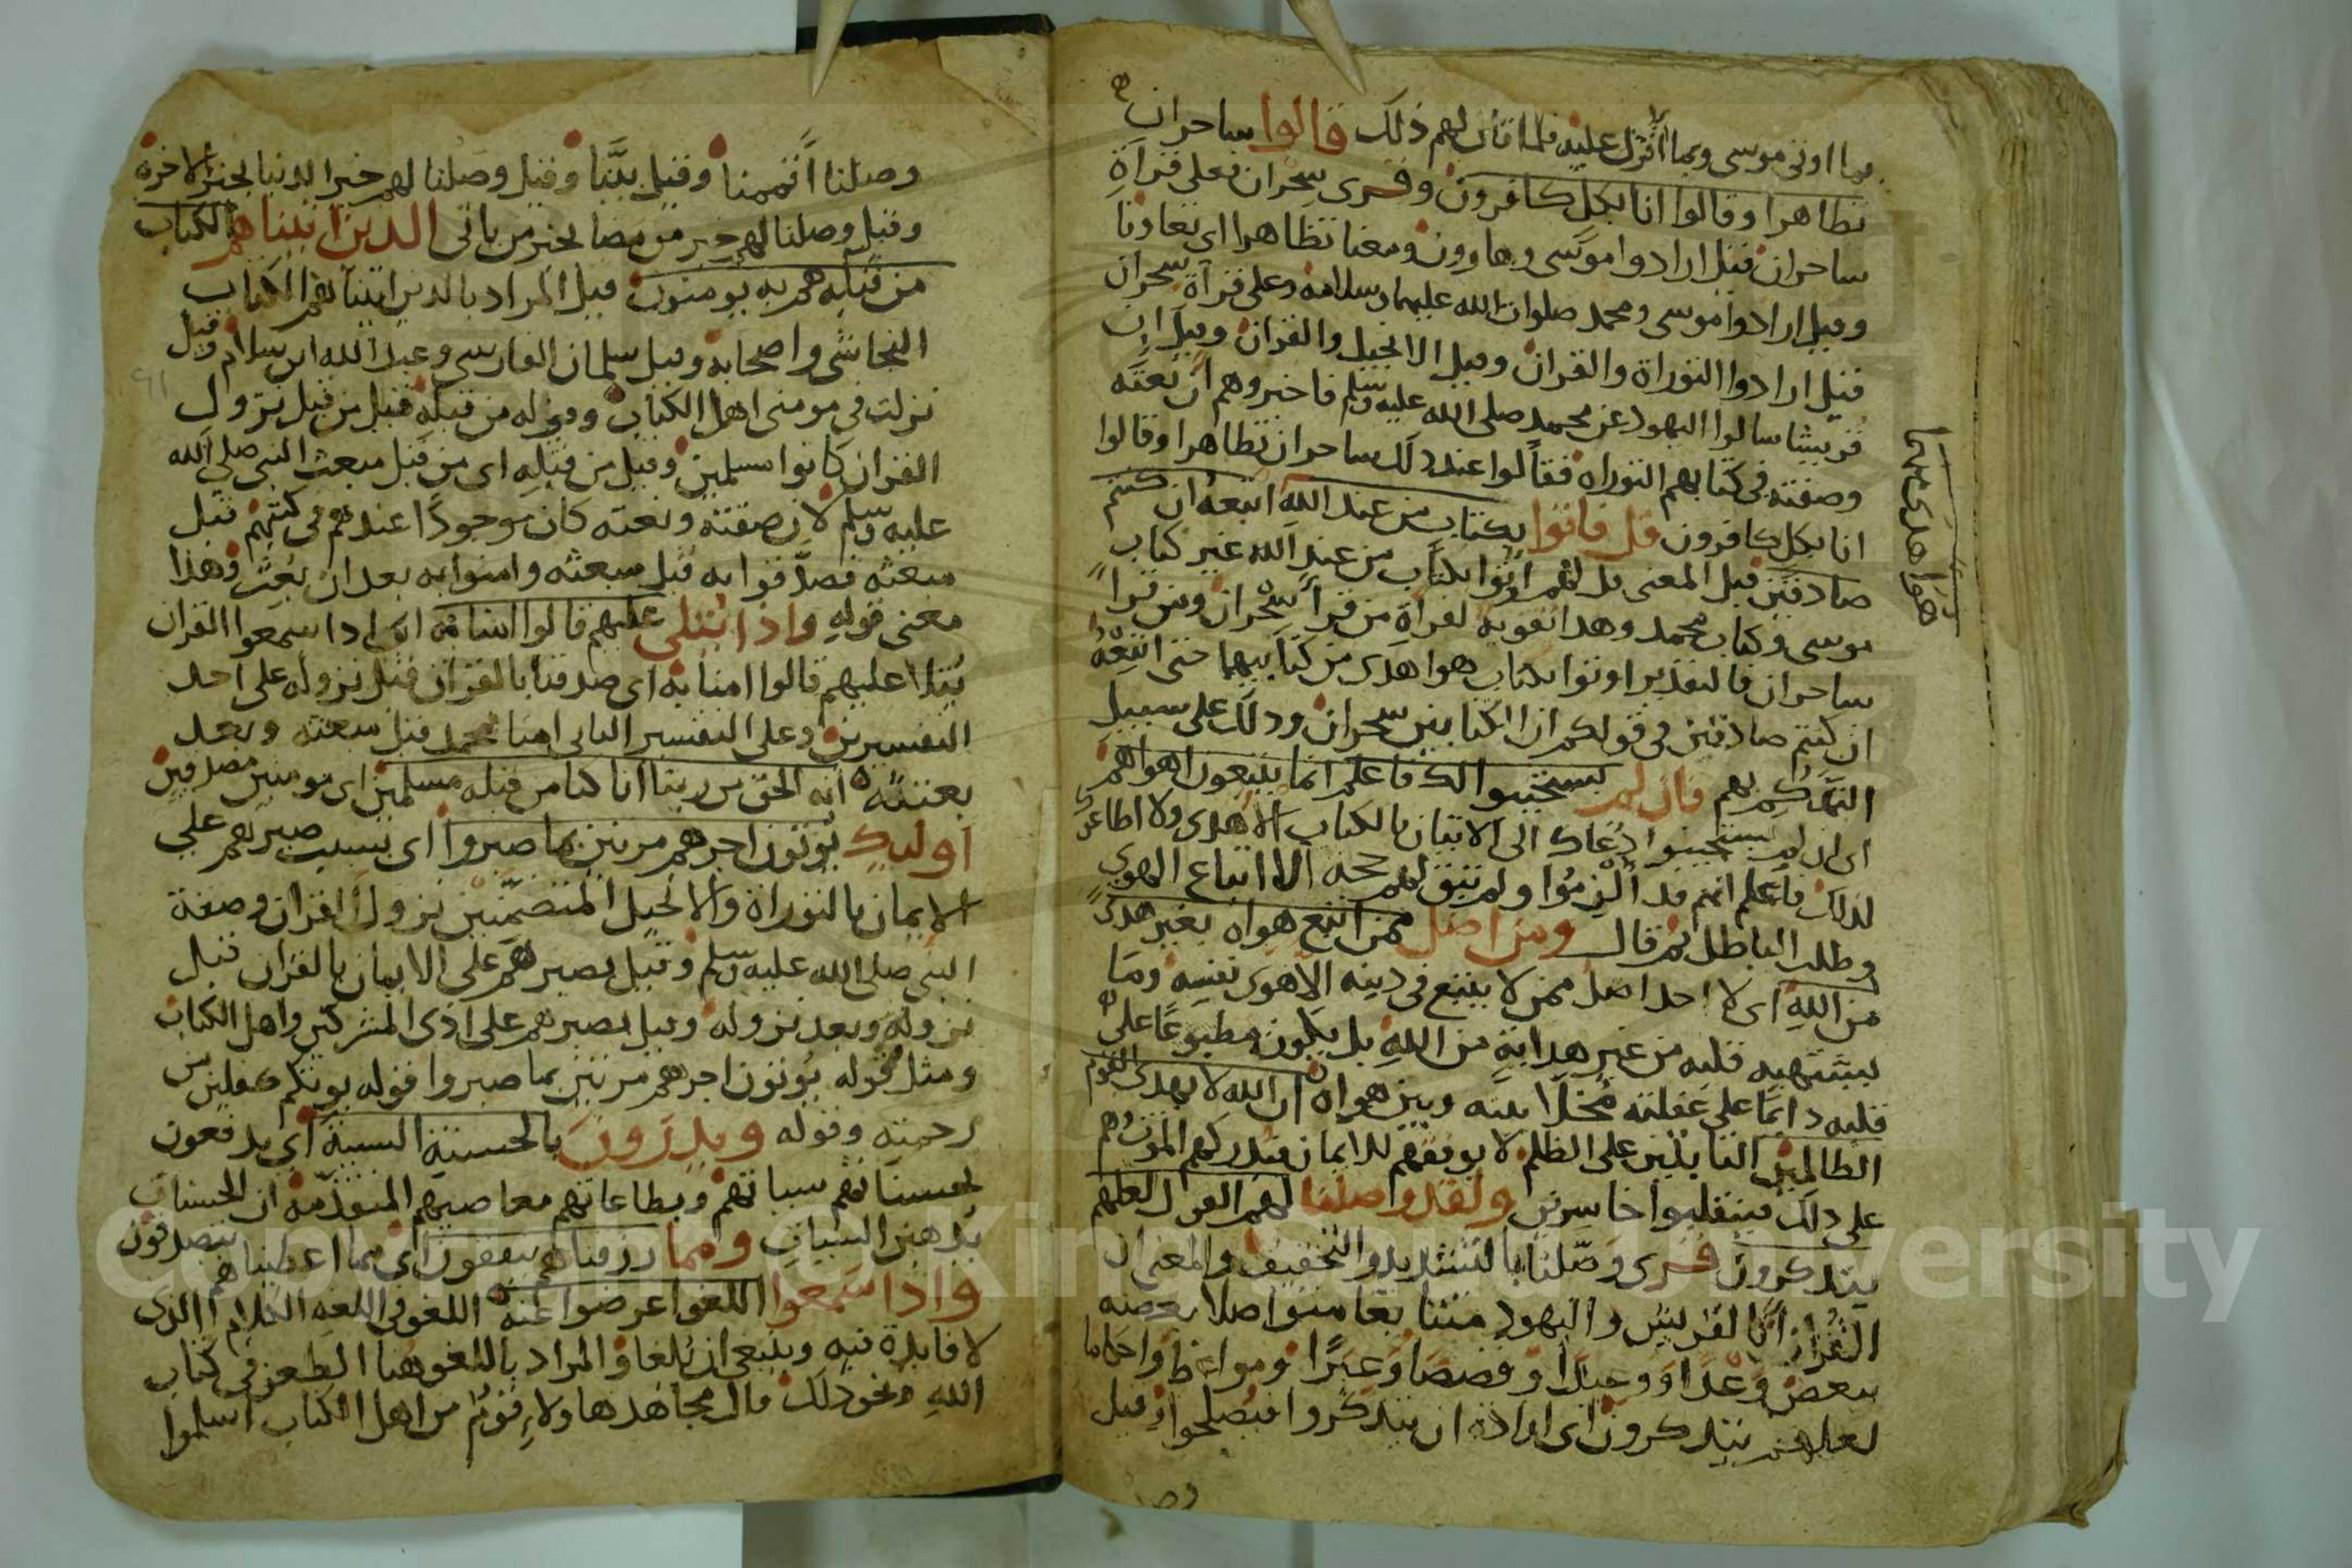 بما اوتى موسى وبما انزل عليه فلما قال لهم ذلك قالوا ساحران
تظاهرا وقالوا انا بكل كافرون وقرى سحران فعلى قراة
ساحران قيل ارادوا موسى وهارون ومعنا تظاهرا اى تعاونا
وقيل ارادوا موسى ومحمد صلوات الله عليهما وسلامه وعلى قراة سحران
قيل ارادوا التوراة والقران وقيل الانجيل والقران وقيل ان
قريشا سالوا اليهود عن محمد صلى الله عليه وسلم فاخبروهم ان نعته
وصفته فى كتابهم التوراه فقالوا عند ذلك ساحران تظاهرا وقالوا
انا بكل كافرون قل فاتوا بكتاب من عند الله اتبعه ان كنتم
صادقين قيل المعنى قل لهم ايتوا بكتاب من عند الله غير كتاب
موسى وكتاب محمد وهذا تقويه لقراة من قرا سحران ومن قرا
ساحران فالتقدير اوتوا بكتاب هو اهدى من كتابيهما حتى اتبعه
هو اهدى منهما
ان كنتم صادقين فى قولكم ان الكتابين سحران وذلك على سبيل
التهكم بهم فان لم يستجيبوا لك فاعلم انما يتبعون اهواهم
اى ان لم يستجيبوا دعاك الى الاتيان بالكتاب الاهدى ولا اطاعوك
لذلك فاعلم انهم قد الزموا ولم تبق لهم حجه الا اتباع الهوى
وطلب الباطل ثم قال ومن اضل ممن اتبع هواه بغير هدى
من الله اى لا احد اضل ممن لا يتبع فى دينه الا هوى نفسه وما
يشتهيه قلبه من غير هداية من الله بل يكون مطبوعا على
قلبه دايما على غفلته مخلا بينه وبين هواه ان الله لا يهدى القوم
الظالمين الثابتين على الظلم لا يوفقهم للايمان فيدركهم الموت وهم
على ذلك فينقلبوا خاسرين ولقد وصلنا لهم القول لعلهم
يتذكرون قرى وصلنا بالتشديد والتخفيف والمعنى ان
القران اتا لقريش واليهود متتابعا متواصلا بعضه
ببعض وعدا ووعيدا وقصصا وعبرا ومواعظ واحكاما
لعلهم يتذكرون اى ارادة ان يتذكروا فيصلحوا وقيل
وصلنا
وصلنا اتممنا وقيل بينا وقيل وصلنا لهم خبر الدنيا بخبر الاخرة
وقيل وصلنا لهم خبر من مضا بخبر من ياتى الذين اتيناهم الكتاب
من قبله هم به يومنون قيل المراد بالذين اتيناهم الكتاب
النجاشى واصحابه وقيل سلمان الفارسى وعبد الله ابن سلام وقيل
نزلت فى مومنى اهل الكتاب وقوله من قبله قيل من قبل نزول
القران كانوا مسلمين وقيل من قبله اى من قبل مبعث النبى صلى الله
عليه وسلم لان صفته ونعته كان موجودا عندهم فى كتبهم قبل
مبعثه فصدقوا به قبل مبعثه وامنوا به بعد ان بعث وهذا
معنى قوله واذا يتلى عليهم قالوا امنا به اى اذا سمعوا القران
يتلا عليهم قالوا امنا به اى صدقنا بالقران قبل نزوله على احد
التفسيرين وعلى التفسير الثانى امنا بمحمد قبل مبعثه وبعد
بعثته انه الحق من ربنا انا كنا من قبله مسلمين اى مومنين مصدقين
اوليك يوتون اجرهم مرتين بما صبروا اى بسبب صبرهم على
الايمان بالتوراة والانجيل المتضمنين نزول القران وصفة
النبى صلى الله عليه وسلم وقيل بصبرهم على الايمان بالقران قبل
نزوله وبعد نزوله وقيل بصبرهم على اذى المشركين واهل الكتاب
ومثل قوله يوتون اجرهم مرتين بما صبروا قوله يوتكم كفلين من
رحمته وقوله ويدرون بالحسنة السيية اى يدفعون
بحسناتهم سياتهم وبطاعاتهم معاصيهم المتقدمة ان الحسنات
يذهبن السيات ومما رزقناهم ينفقون اى مما اعطيناهم يتصدقون
واذا سمعوا اللغو اعرضوا عنه اللغو فى اللغه الكلام الذى
لا فايدة فيه وينبغى ان يلغا والمراد باللغو هنا الطعن فى كتاب
الله ونحو ذلك قال مجاهد هاولاء قوم من اهل الكتاب اسلموا